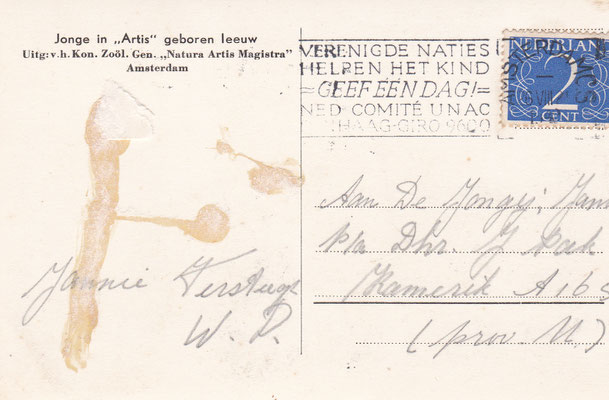 Jonge in „Artis” geboren leeuw
Uitg: v.h. Kon. Zoöl. Gen. „Natura Artis Magistra”
Amsterdam
VERENIGDE NATIES
HELPEN HET KIND
GEEF EEN DAG!
NED. COMITÉ UNAC
HAAG-GIRO 9600
NEDERLAND
2
CENT
Aan De Jongej:
p/a Dhr. J Pak
Kamerik A 168
(prov. U)
Jannie Verstugt
W. P.